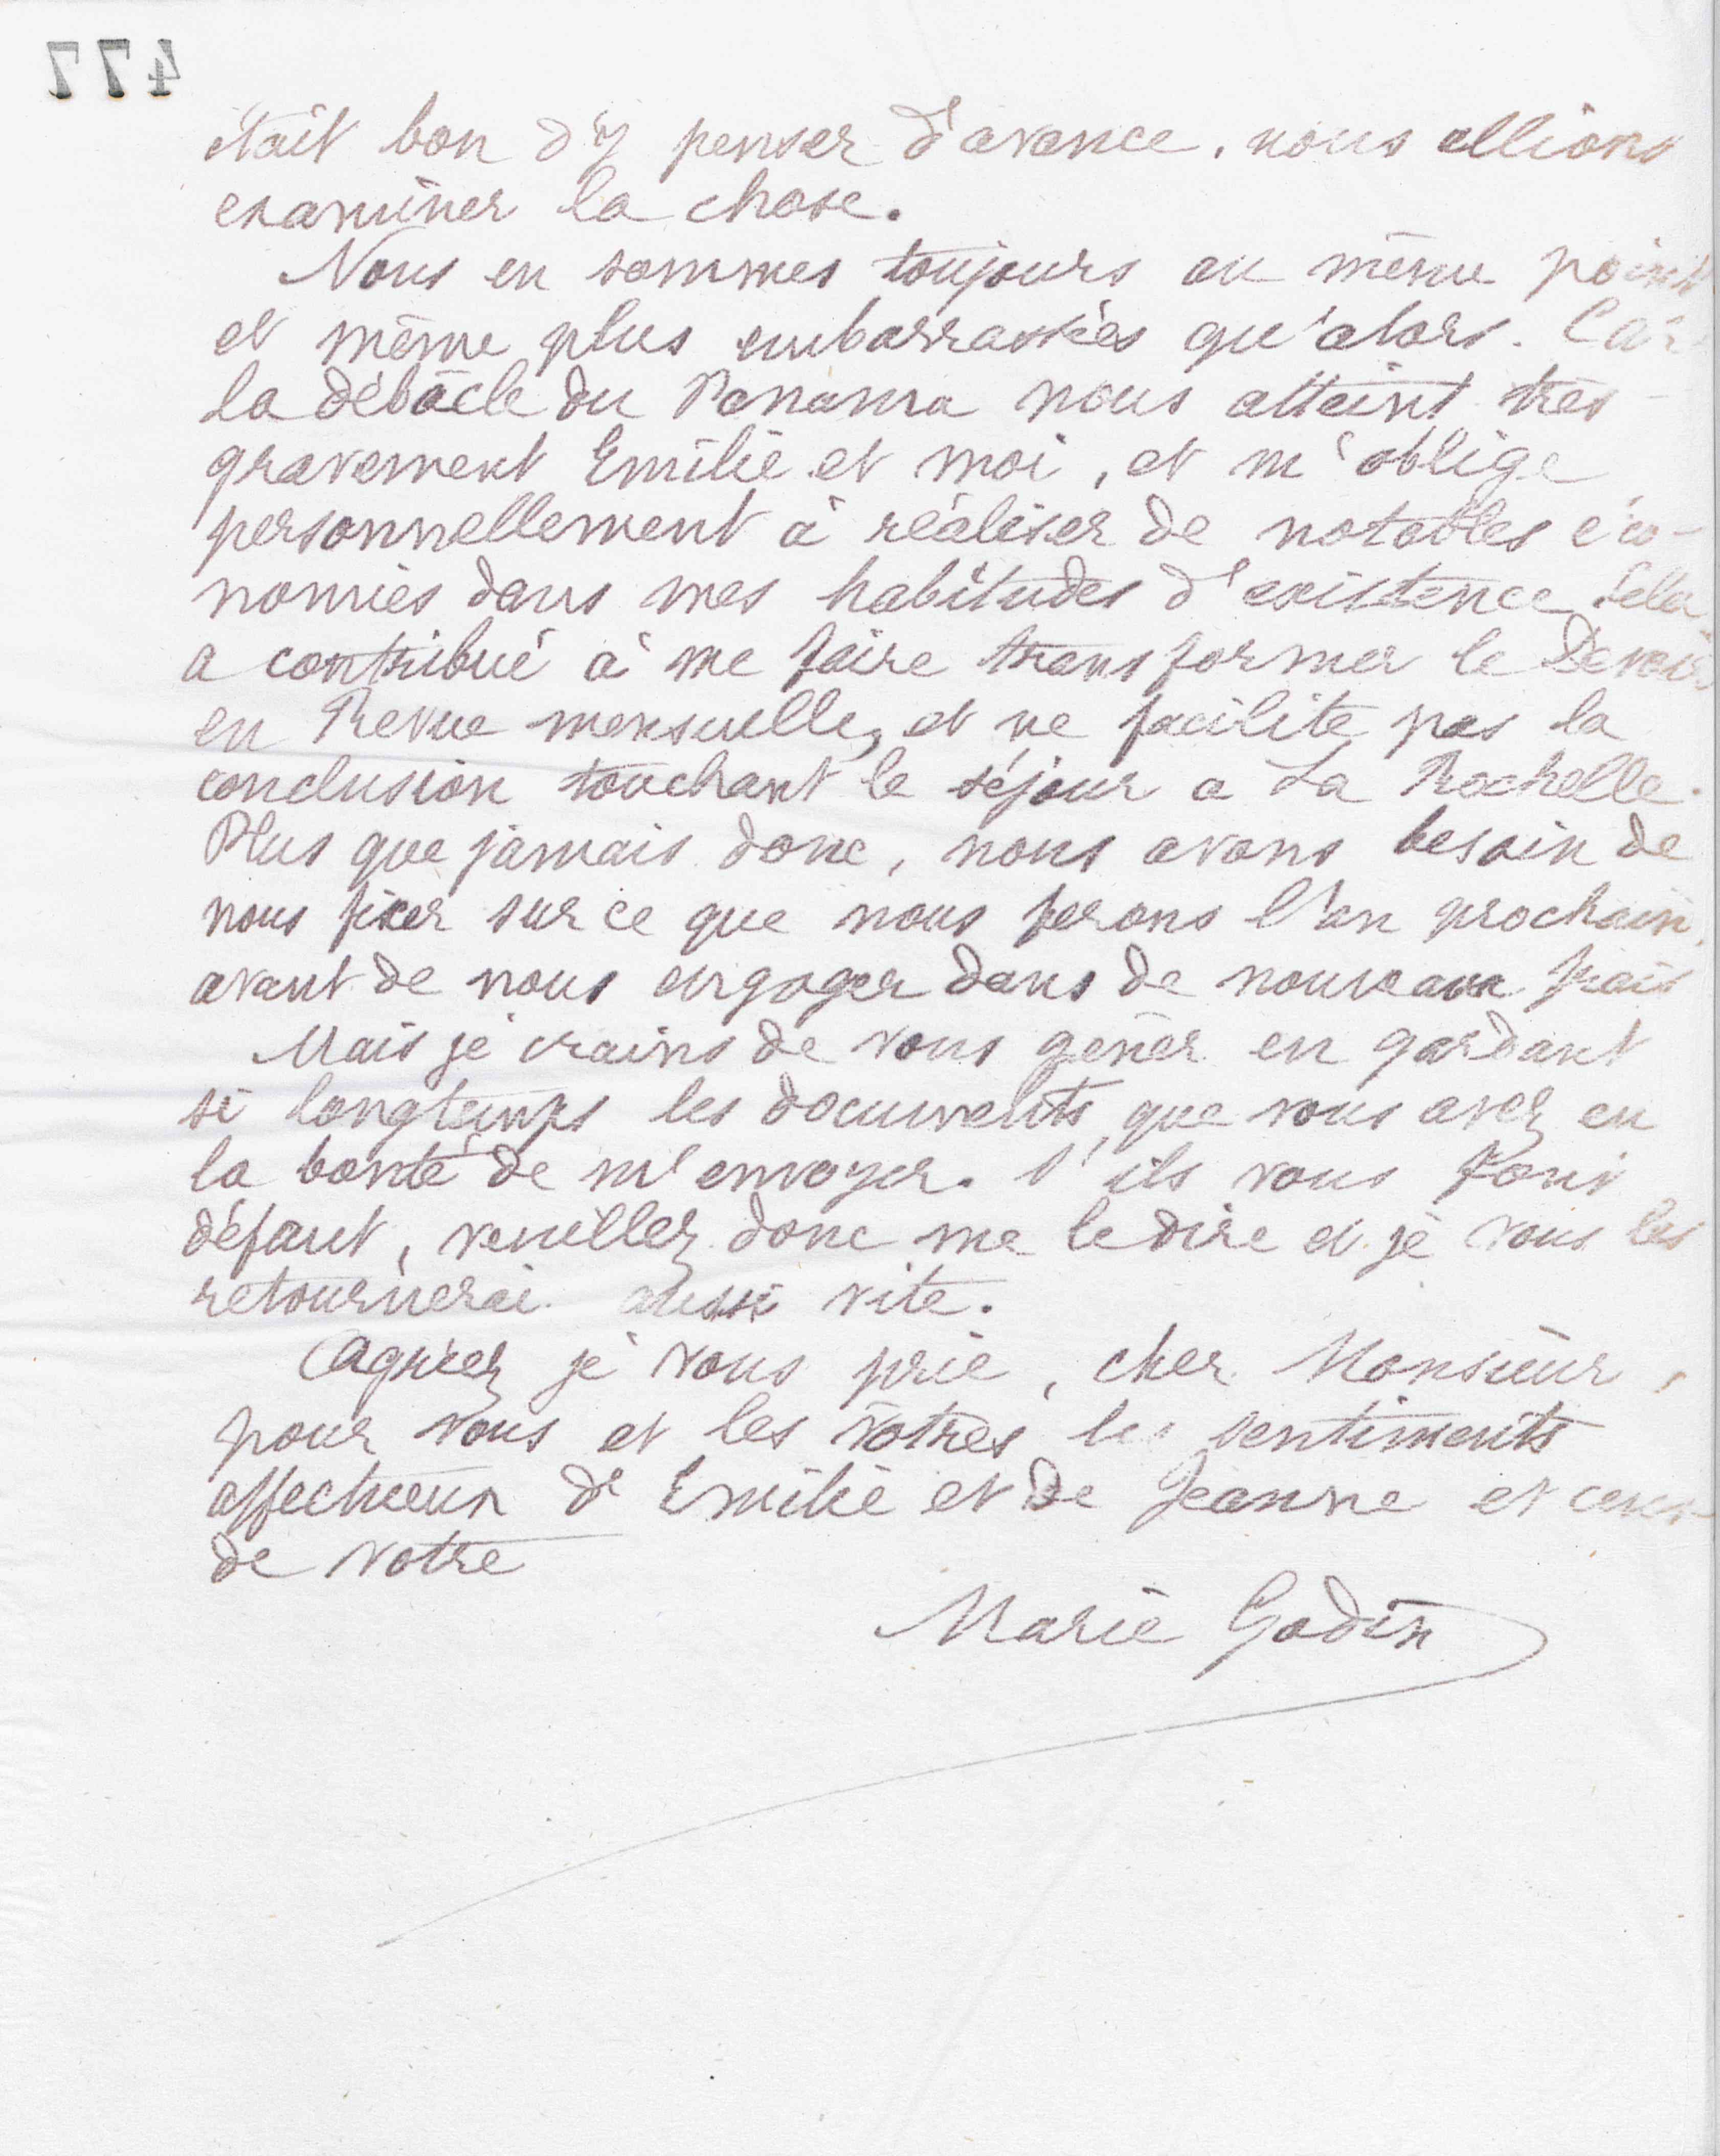 477
était bon d'y penser d'avance, nous allions
examiner la chose.
Nous en sommes toujours au même point
et même plus embarrassées qu'alors. Car
la débâcle du Panama nous atteint très
gravement Emilie et moi, et m'oblige
personnellement à réaliser de notables éco-
nomies dans mes habitudes d'existence. Cela
a contribué à me faire transformer le Devoir
en Revue mensuelle, et ne facilite pas la
conclusion touchant le séjour a La Rochelle.
Plus que jamais donc, nous avons besoin de
nous fixer sur ce que nous ferons l'an prochain,
avant de nous engager dans de nouveaux frais
Mais je crains de vous gêner en gardant
si longtemps les documents, que vous avez eu
la bonté de m'envoyer. S'ils vous font
défaut, veuillez donc me le dire et je vous les
retournerai aussi vite.
Agréez je vous prie, cher Monsieur,
pour vous et les vôtres les sentiments
affectueux d'Emilie et de Jeanne et ceux
de votre
Marie Godin